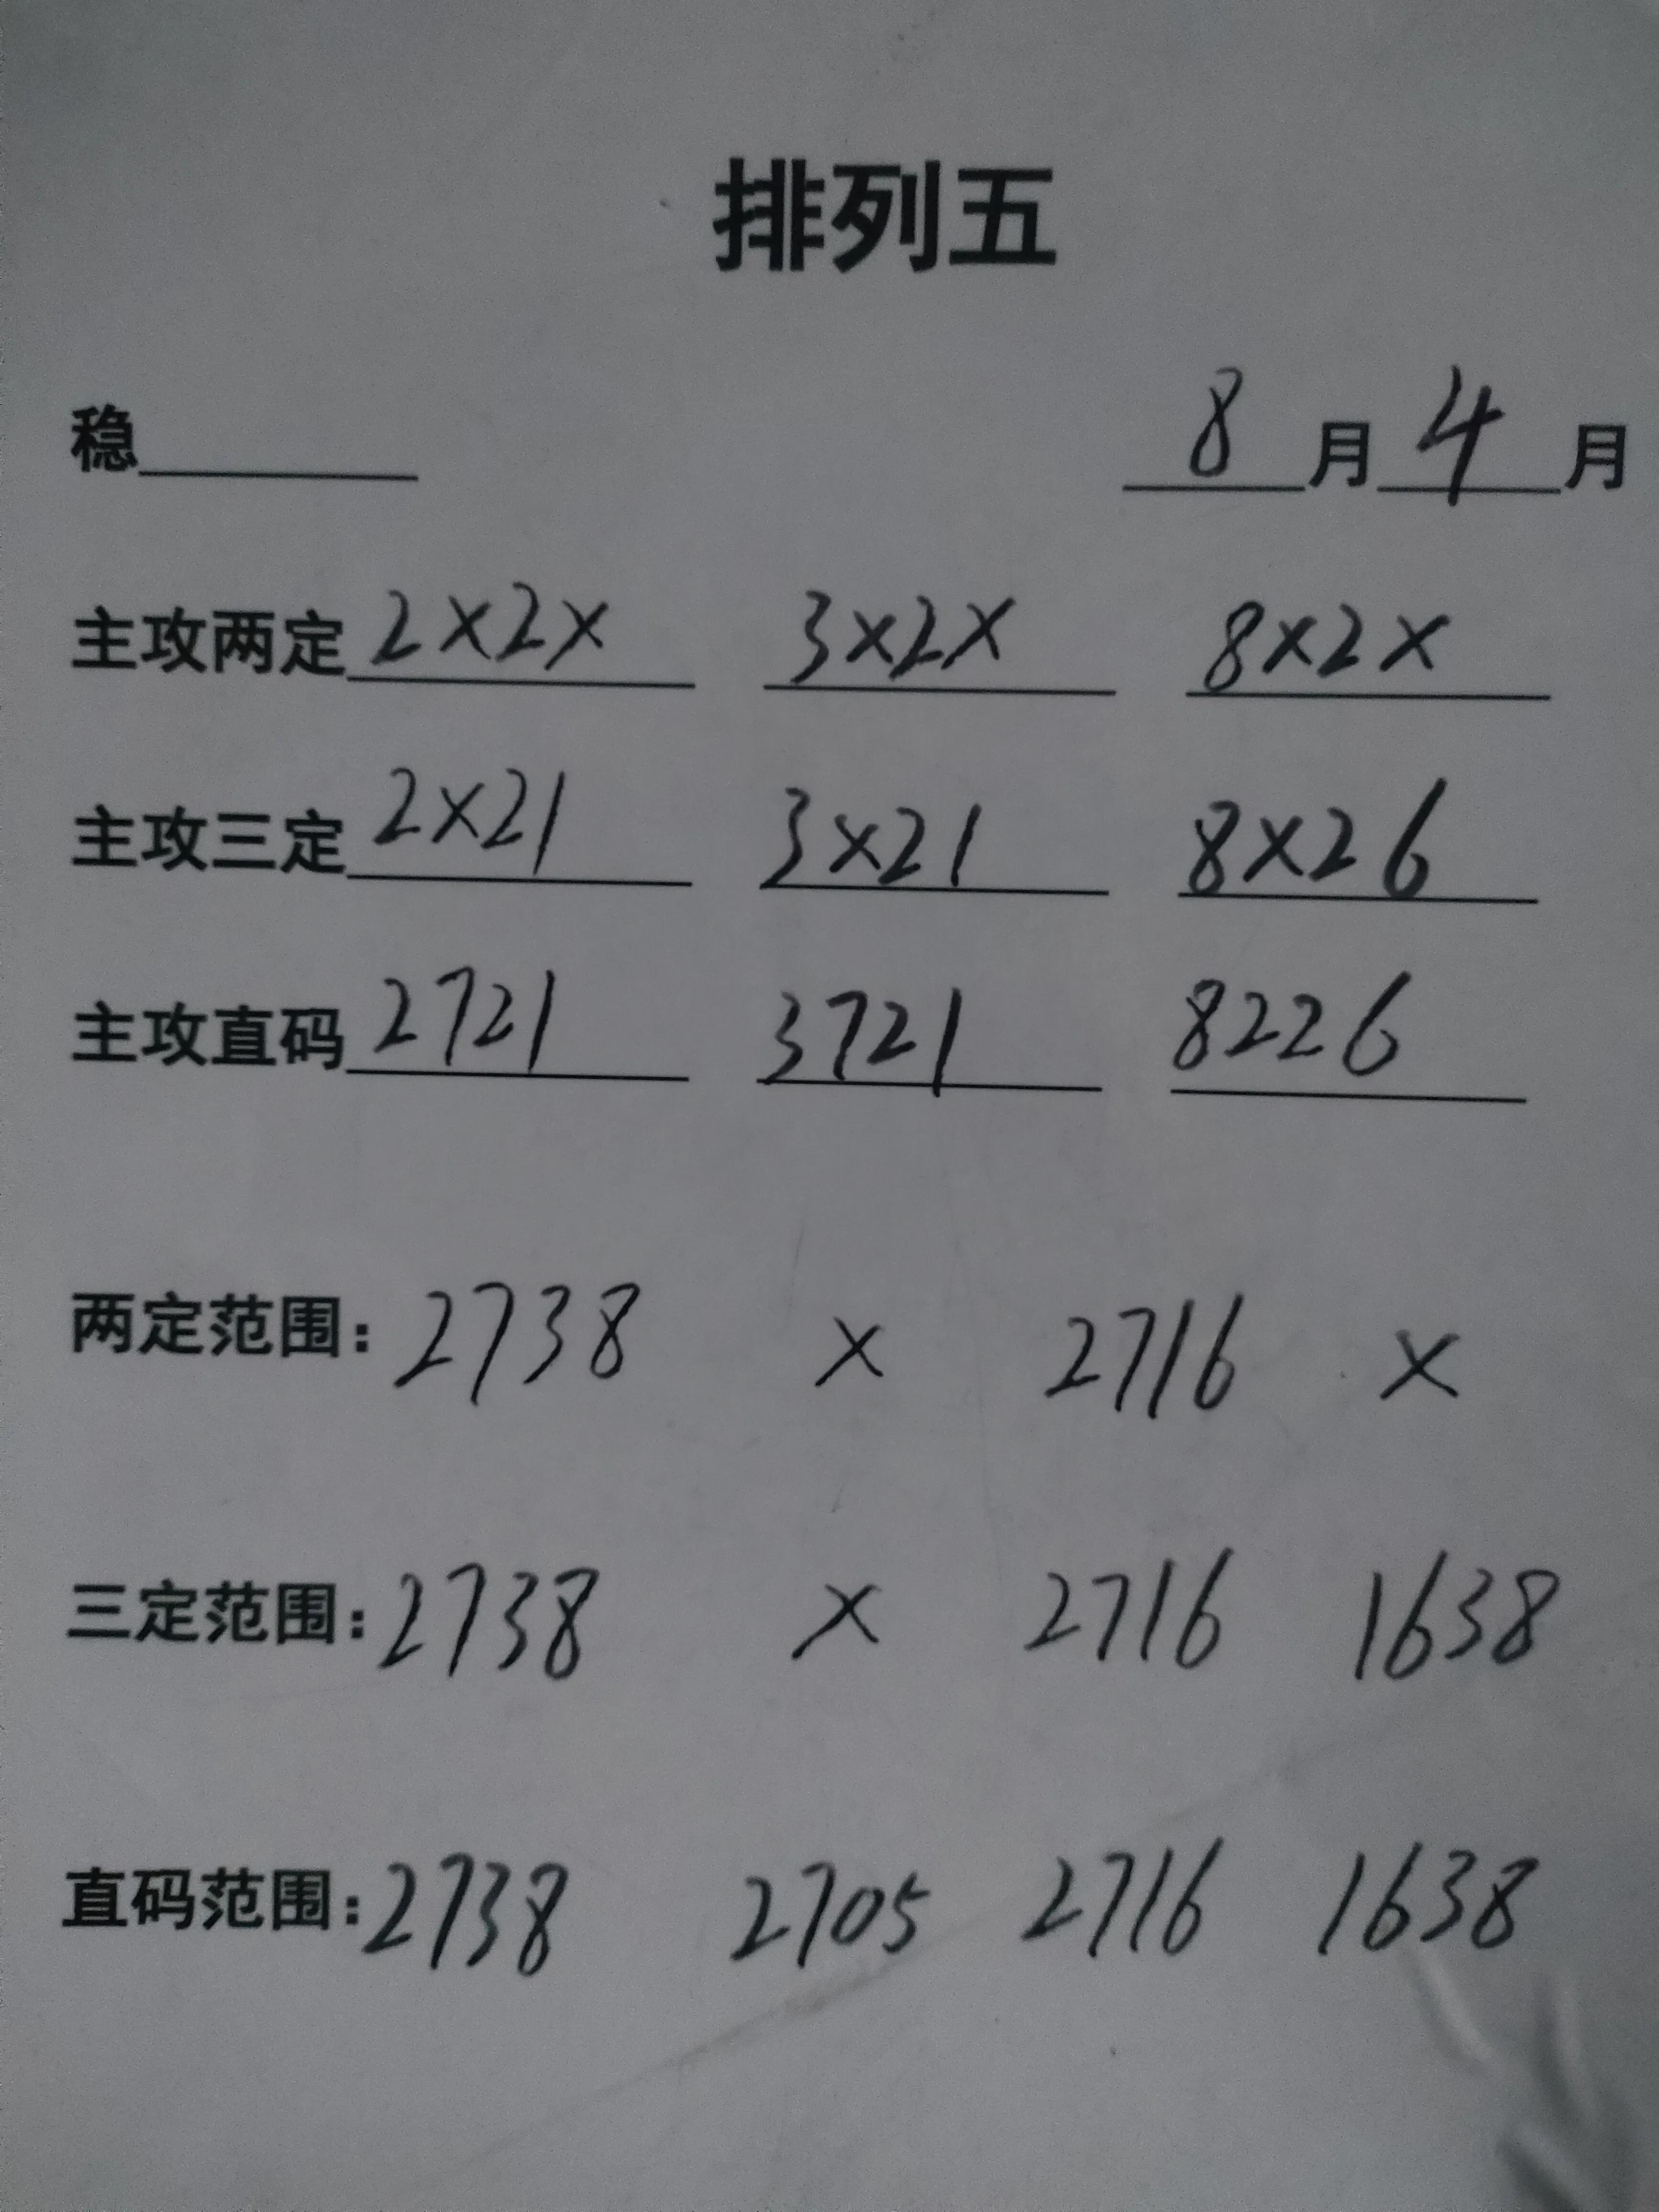 排列五
稳______ 8月4月
主攻两定 2×2× 3×2× 8×2×
主攻三定 2×21 3×21 8×26
主攻直码 2721 3721 8226
两定范围：2738 × 2716 ×
三定范围：2738 × 2716 1638
直码范围：2738 2705 2716 1638